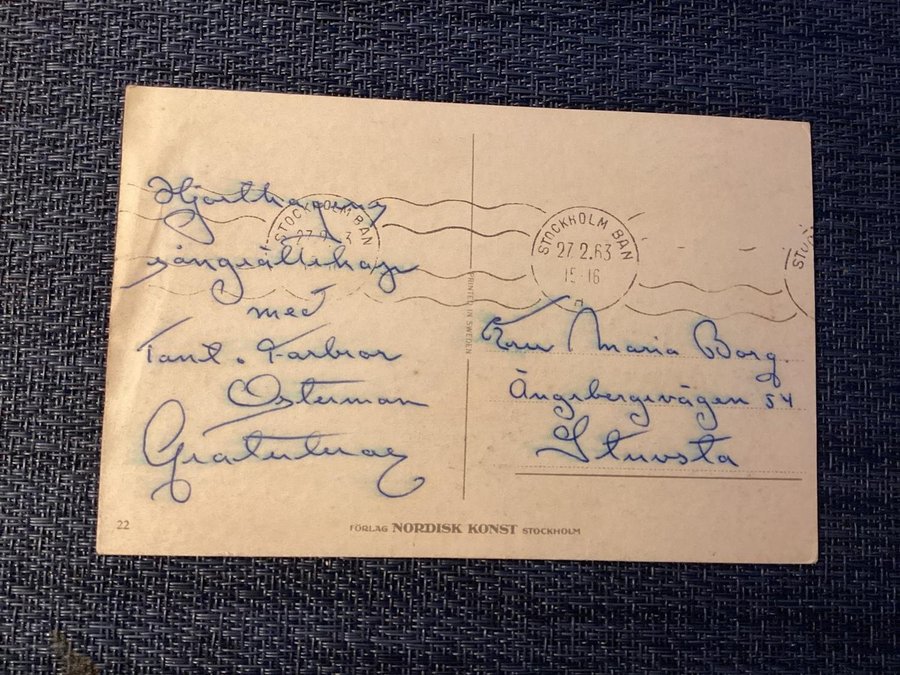 Hjorthagens
sångsällskap
med
Tant o Farbror
Österman
Gratulerar
STOCKHOLM BAN
27.2.63
STOCKHOLM BAN
27.2.63
15-16
PRINTED IN SWEDEN
Fru Maria Borg.
Ängsbergsvägen 54
Stuvsta
22
FÖRLAG NORDISK KONST STOCKHOLM